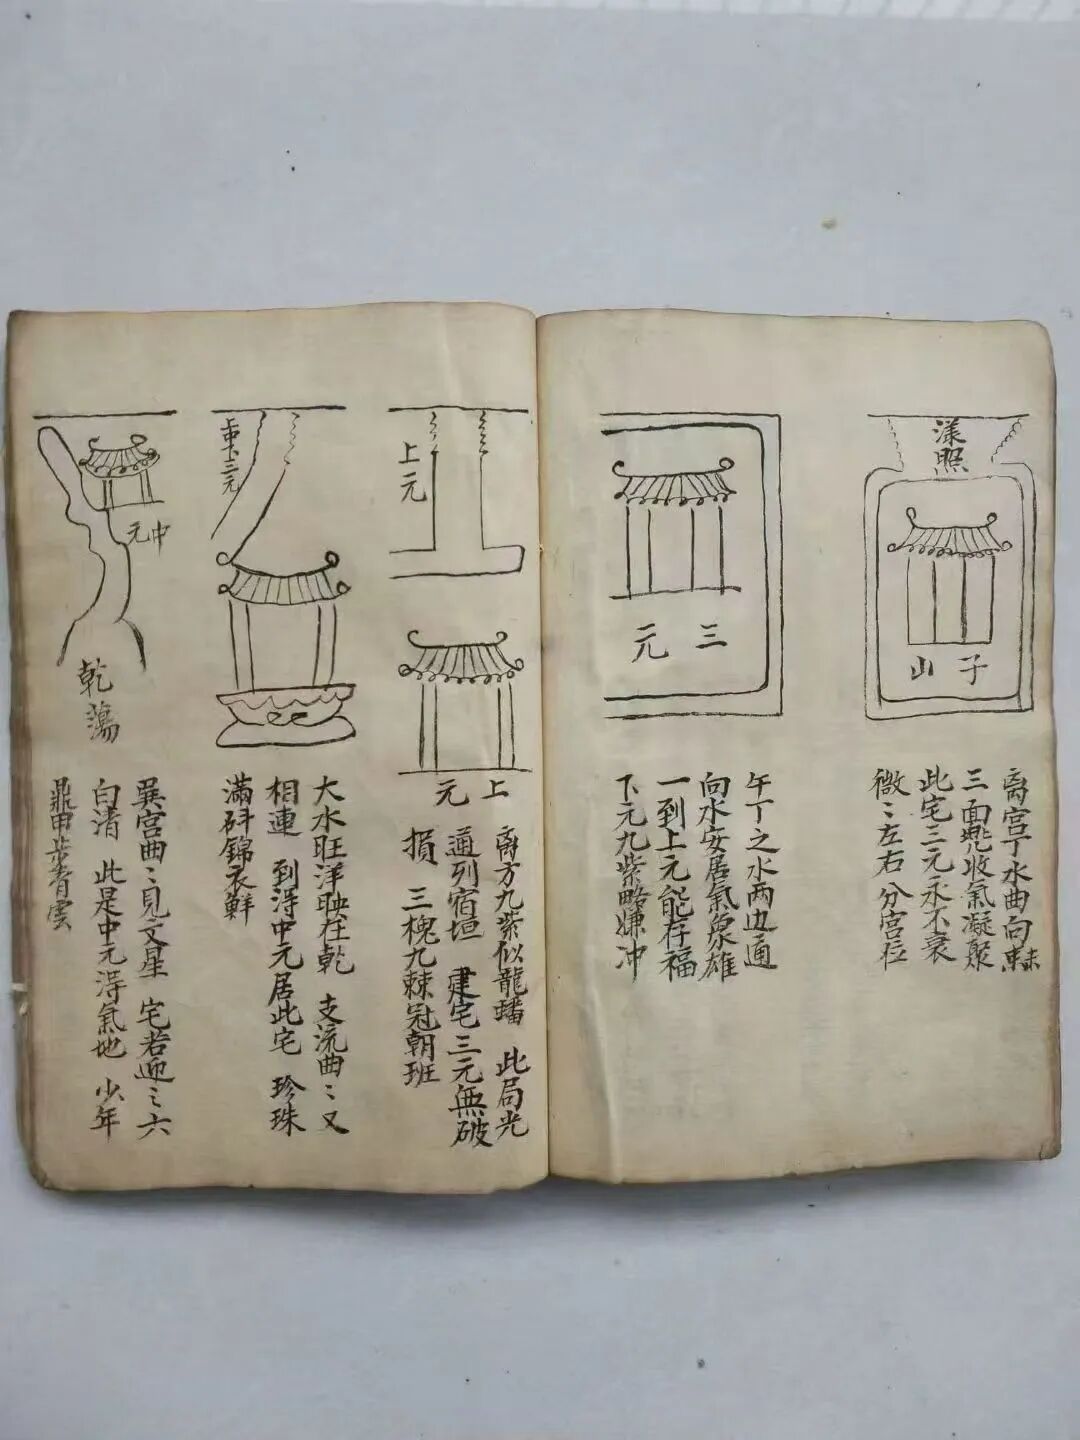 漾照
子山
离宫丁水曲向
三面兜收氣凝聚
此宅三元永不衰
微〻左右分宫位
三元
午丁之水兩边通
向水安居氣象雄
一到上元能存福
下元九紫略嫌冲
上元
上元
离方九紫似龍蟠 此局光
通列宿垣 建宅三元無破
損 三槐九棘冠朝班
上中下三元
大水旺洋映在乾 支流曲〻又
相連 到得中元居此宅 珍珠
滿斗錦衣鮮
中元
乾蕩
巽宫曲〻見文星 宅若迎之六
白清 此是中元得氣地 少年
鼎甲步青雲